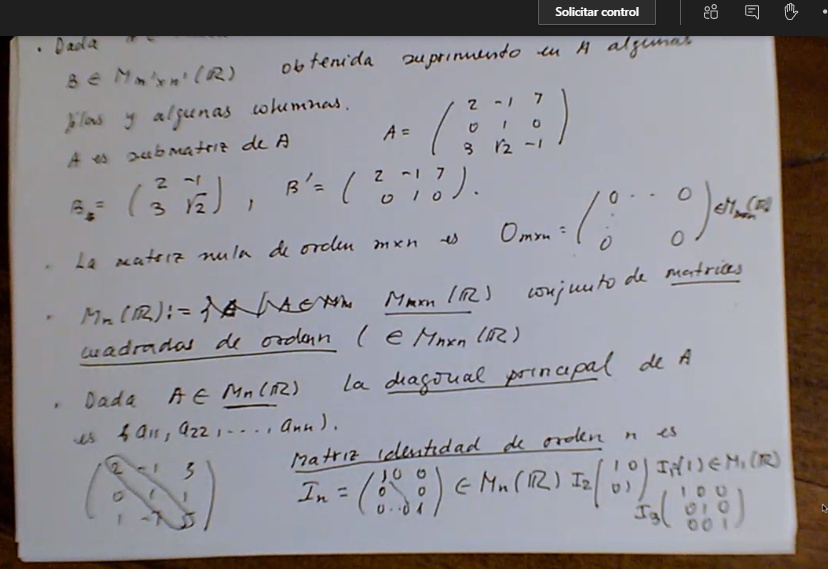 Solicitar control
. Dada
B ∈ Mm'xn'(ℝ) obtenida suprimiento en A algunas
filas y algunas columnas.
A es submatriz de A
A = ( 2 -1 7
0 1 0
3 √2 -1 )
B = ( 2 -1
3 √2 ) , B' = ( 2 -1 7
0 1 0 ).
. La matriz nula de orden mxn es Omxn = ( 0 ... 0
0 0 ) ∈ Mmxn(ℝ)
. Mn(ℝ) := Mmxn(ℝ) conjunto de matrices
cuadradas de orden n ( ∈ Mnxn(ℝ)
. Dada A ∈ Mn(ℝ) la diagonal principal de A
es {a11, a22, ...., ann).
Matriz identidad de orden n es
( 2 -1 3
0 1 1
1 -7 5 )
In = ( 1 0 0
0 0
0..01 ) ∈ Mn(ℝ) I2 ( 1 0
0 1 ) I1(1) ∈ M1(ℝ)
I3 ( 1 0 0
0 1 0
0 0 1 )